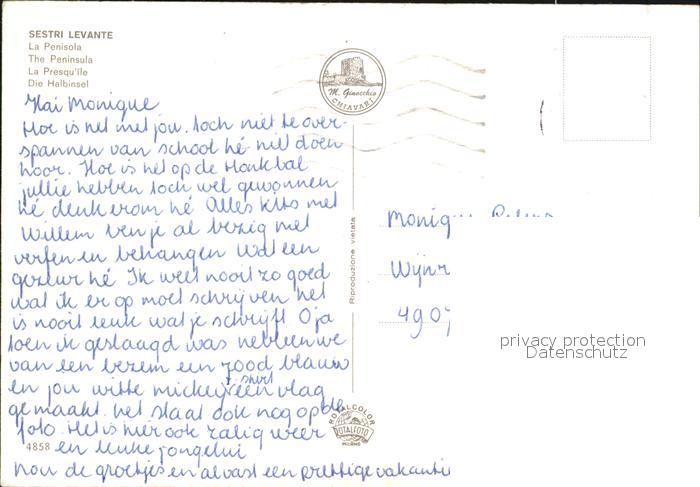 SESTRI LEVANTE
La Penisola
The Peninsula
La Presqu'île
Die Halbinsel
M. Ginocchio
CHIAVARI
Hai Monique
Hoe is het met jou. Toch niet te over-
spannen van school hé niet doen
hoor. Hoe is het op de Honkbal
jullie hebben toch wel gewonnen
hé denk erom hé Alles kits met
Willem ben je al bezig met
verfen en behangen Wat een
gezeur hé Ik weet nooit zo goed
wat ik er op moet schrijven het
is nooit leuk wat je schrijft O ja
toen ik geslaagd was hebben we
van een bezem een rood blauw
en jou witte mickey shirt een vlag
gemaakt. het staat ook nog op de
foto. Het is hier ook zalig weer
en leuke jongelui
Nou de groetjes en alvast een prettige vakantie
4858
Riproduzione vietata
ROTALCOLOR
ROTALFOTO
MILANO
Moniq
Wijnr
4907
privacy protection
Datenschutz